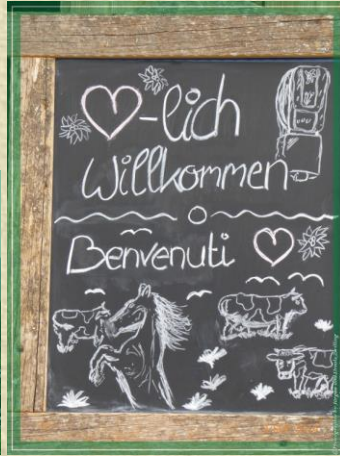 ♡-lich
Willkommen
Benvenuti ♡